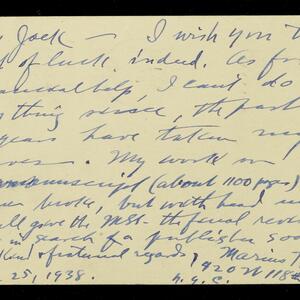 Jack — I wish you th
of luck indeed. As for
help, I can't do
thing since, the past
years have taken my
. My work on
manuscript (about 1100 pgs)
broke, but with hard
give the MSS. the final rev
in search for a publisher soo
Kind & fraternal regards, Marius
25, 1938. 420 W 118th
N.Y.C.